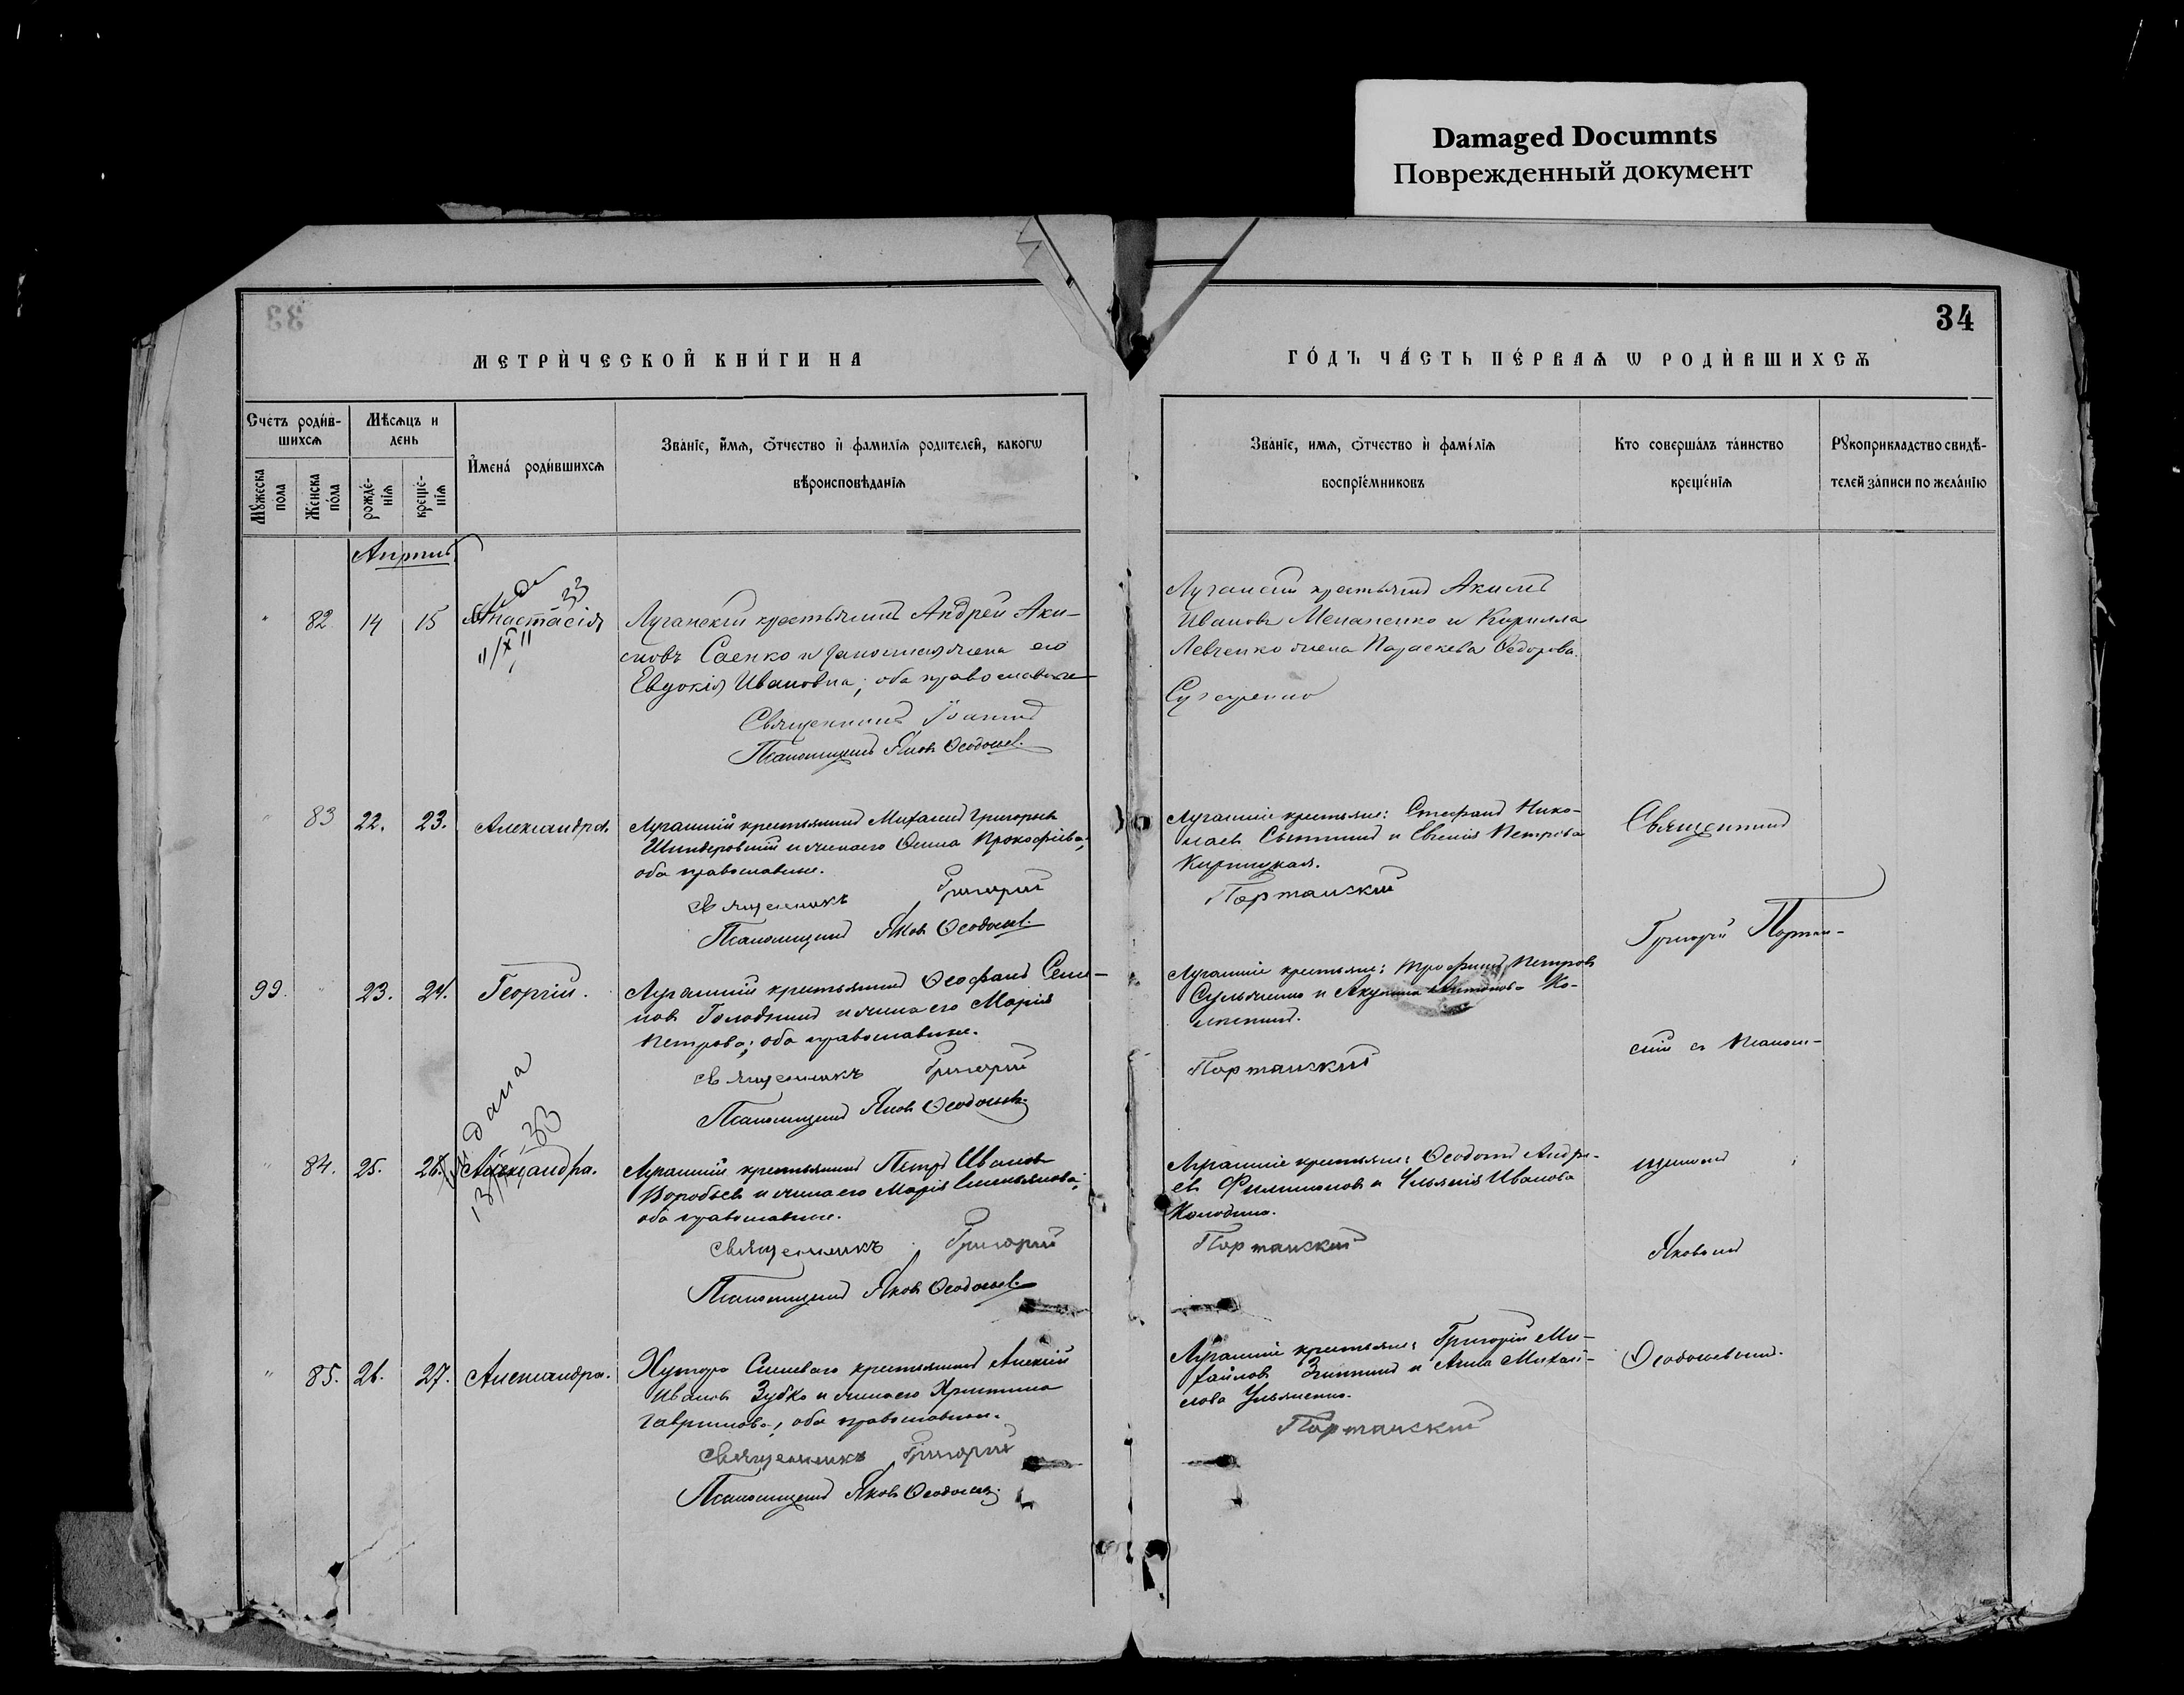 Damaged Documnts
Поврежденный документ
33
34
МЕТРИ́ЧЕСКОЙ КНИ́ГИ НА
ГО́ДЪ ЧА́СТЬ ПЕ́РВАѦ Ѡ РОДИ́ВШИХСѦ
Сче́тъ роди́в-
шихсѧ
Мѣ́сѧцъ и
день
Мꙋ́жеска по́ла
Же́нска по́ла
рожде́-
нїѧ
креще́-
нїѧ
И҆мена́ роди́вшихсѧ
Зва́нїе, и҆́мѧ, ѻ҆́тчество и҆ фами́лїѧ роди́телей, какогѡ
вѣроисповѣ́данїѧ
Зва́нїе, имѧ, ѻ҆́тчество и҆ фамі́лїѧ
воспрїе́мниковъ
Кто соверша́лъ та́инство
креще́нїѧ
Рꙋкоприкла́дство свидѣ́-
телей за́писи по жела́нїю
Апрѣль
" 82 14 15 Анастасія
Луганскій крестьянинъ Андрей Аки-
мовъ Саенко и законная жена его
Евдокія Ивановна, оба православные
Священникъ Іоаннъ
Псаломщикъ Яковъ Ѳеодосьев.
Акимъ
Ивановъ и Кирилла
Левченко жена Параскева Ѳедорова
" 83 22. 23. Александра.
Луганскій крестьянинъ Михаилъ Григорьев
и жена его Прокофіева,
оба православные.
Священникъ Григорій
Псаломщикъ Яковъ Ѳеодосьев.
Луганскіе крестьяне: Стефанъ Нико-
лаевъ и Евгенія Петрова
Портанскій
Священникъ
Григорій Портан-
99. " 23. 24. Георгій.
Луганскій крестьянинъ Ѳеофанъ Семе-
новъ и жена его Марія
Петрова; оба православные.
Священникъ Григорій
Псаломщикъ Яковъ Ѳеодосьев.
Луганскіе крестьяне: Трофимъ Петровъ
и Акулина Антонова
Портанскій
скій съ Псалом-
дана
" 84. 25. 26. Александра.
Луганскій крестьянинъ Петръ Ивановъ
Воробьевъ и жена его Марія Емельянова,
оба православные.
Священникъ Григорій
Псаломщикъ Яковъ Ѳеодосьев.
Луганскіе крестьяне: Ѳеодотъ Андре-
евъ Филимоновъ и Ульянія Иванова
Портанскій
щикомъ
Яковомъ
" 85. 26. 27. Александра.
Хутора крестьянинъ Алексій
Ивановъ Зубко и жена его Христина
Гаврилова, оба православные.
Священникъ Григорій
Псаломщикъ Яковъ Ѳеодосьев.
Луганскіе крестьяне: Григорій Ми-
хайловъ и Анна Михай-
лова Ульяненко.
Портанскій
Ѳеодосьевымъ.